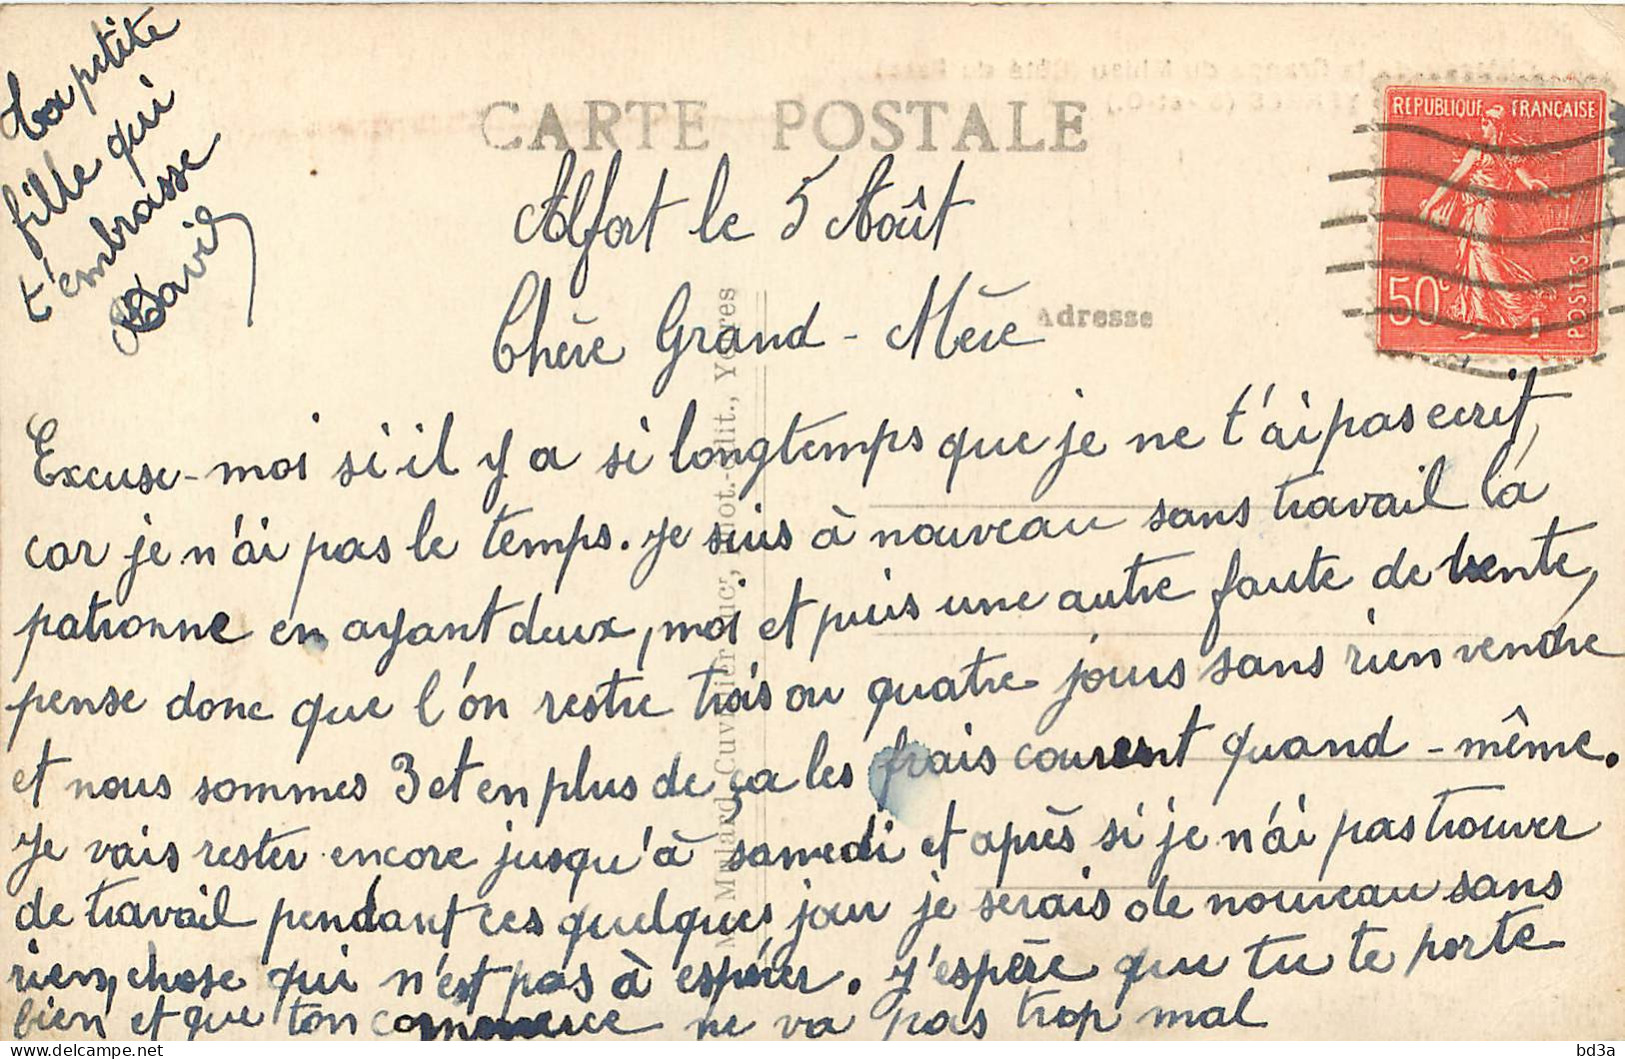 CARTE POSTALE
REPUBLIQUE FRANÇAISE
50c
POSTES
Adresse
Alfort le 5 Août
Chère Grand-Mère
Excuse-moi si il y a si longtemps que je ne t'ai pas ecrit,
car je n'ai pas le temps. Je suis à nouveau sans travail la
patronne en ayant deux, moi et puis une autre faute de vente,
pense donc que l'on restre trois ou quatre jours sans rien vendre
et nous sommes 3 et en plus de ça les frais courent quand-même.
Je vais rester encore jusqu'à samedi et après si je n'ai pas trouver
de travail pendant ces quelques jour je serais de nouveau sans
rien, chose qui n'est pas à espérer. J'espère que tu te porte
bien et que ton commerce ne va pas trop mal
Ta petite
fille qui
t'embrasse
bd3a